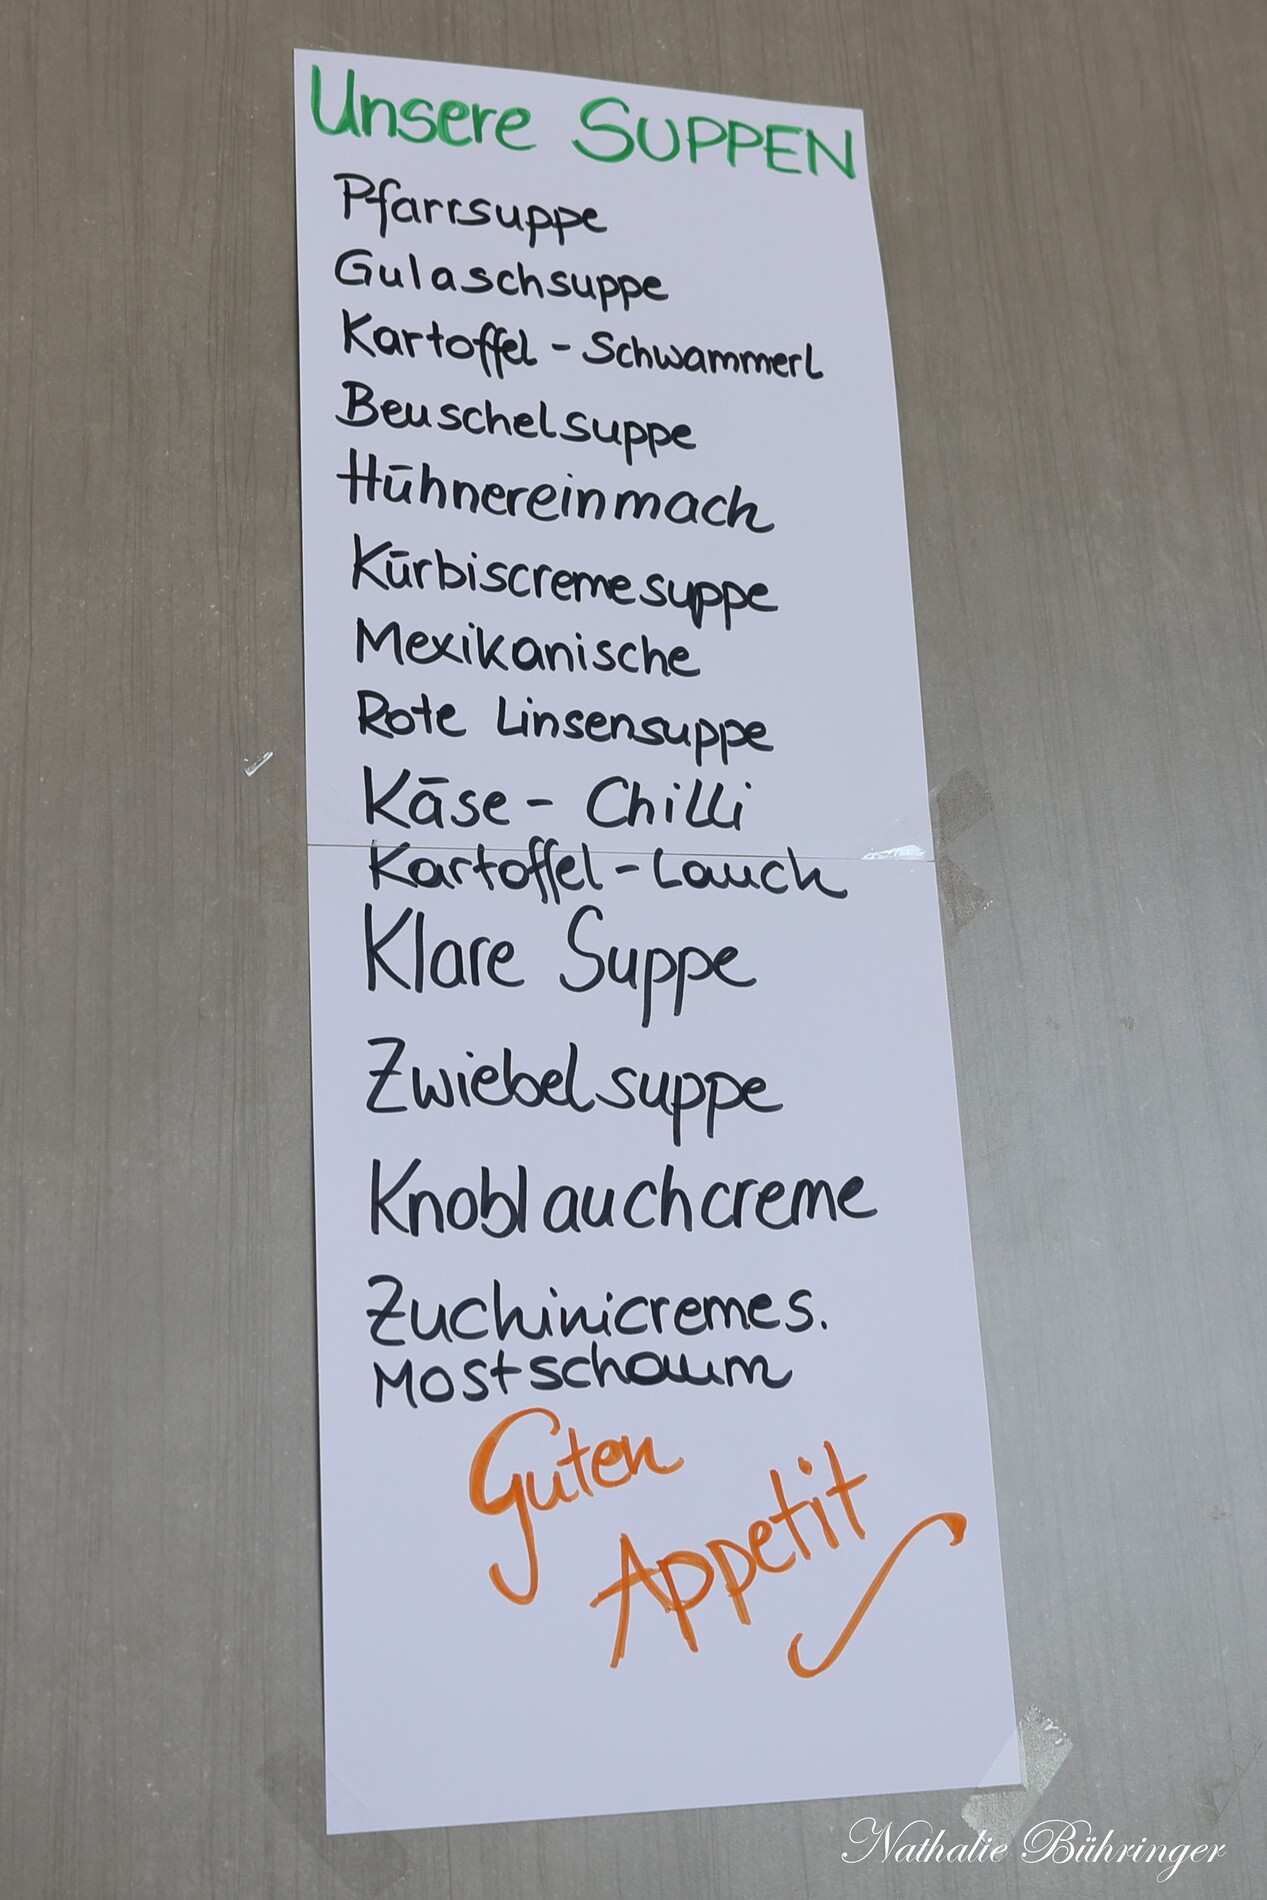 Unsere SUPPEN
Pfarrsuppe
Gulaschsuppe
Kartoffel - Schwammerl
Beuschelsuppe
Hühnereinmach
Kürbiscremesuppe
Mexikanische
Rote Linsensuppe
Käse - Chilli
Kartoffel - Lauch
Klare Suppe
Zwiebelsuppe
Knoblauchcreme
Zuchinicremes.
Mostschaum
Guten
Appetit
Nathalie Bühringer